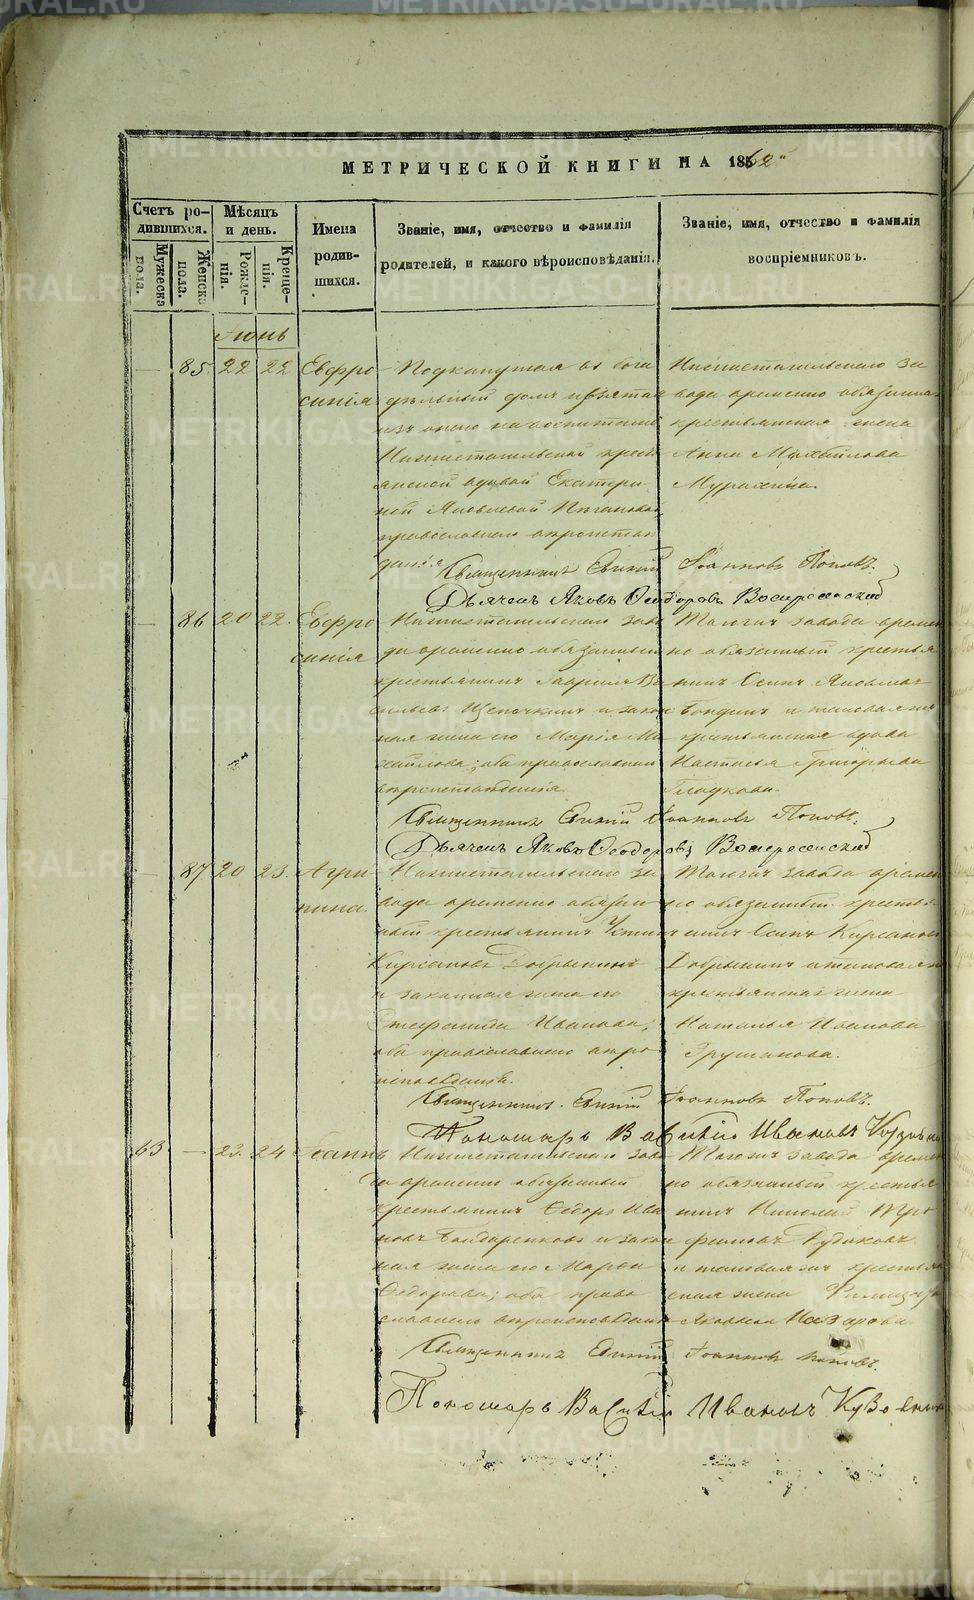 МЕТРИЧЕСКОЙ КНИГИ НА 1862й
Счетъ ро-
дившихся.
Мужеска
пола.
Женска
пола.
Мѣсяцъ
и день.
Рожде-
нія.
Креще-
нія.
Имена
родив-
шихся.
Званіе, имя, отчество и фамилія
родителей, и какого вѣроисповѣданія.
Званіе, имя, отчество и фамилія
воспріемниковъ.
Іюнь
85 22 22 Евфро
синія
Подкинутая въ бога
дѣльный домъ и взятая
изъ онаго на воспитаніе
Нижнетагильской кресть
янской вдовой Екатери
ной Яковлевой
православнаго
Нижнетагильскаго за
вода временно обязанна
крестьянская жена
Анна Михайлова
Священникъ Евгеній Іоанновъ Поповъ.
Дьячекъ Яковъ Ѳеодоровъ Воскресенскій
86 20 22. Евфро
синія
Нижнетагильскаго заво
да временно обязанный
крестьянинъ Гаврилъ Ва
сильевъ Щепочкинъ и закон
ная жена его Марія Ми
хайлова; оба православнаго
вѣроисповѣданія.
Тогожъ завода времен
но обязанный крестья
нинъ Осипъ Яковлевъ
и таковая жъ
крестьянская вдова
Настасья Григорьева
Гладкова.
Священникъ Евгеній Іоанновъ Поповъ.
Дьячекъ Яковъ Ѳеодоровъ Воскресенскій
87 20 23. Агри
пина
Нижнетагильскаго за
вода временно обязан
ный крестьянинъ Устинъ
Кирсановъ Добрынинъ
и законная жена его
Стефанида Иванова,
оба православнаго вѣро
исповѣданія.
Тогожъ завода времен
но обязанный крестья
нинъ Осипъ Кирсановъ
Добрынинъ и таковая ж
крестьянская жена
Наталья Иванова
Грушанова.
Священникъ Евгеній Іоанновъ Поповъ.
Пономарь Василій Ивановъ
63 — 23. 24 Іоаннъ
Нижнетагильскаго заво
да временно обязанный
крестьянинъ Ѳедоръ Ива
новъ Бондаренковъ и закон
ная жена его Марѳа
Ѳедорова; оба право
славнаго вѣроисповѣданія
Тогожъ завода времен
но обязанный крестья
нинъ Николай Тро
фимовъ Рудаковъ
и таковая жъ крестьян
ская жена
Яковлева Назарова
Священникъ Евгеній Іоанновъ Поповъ.
Пономарь Василій Ивановъ
METRIKI.GASO-URAL.RU